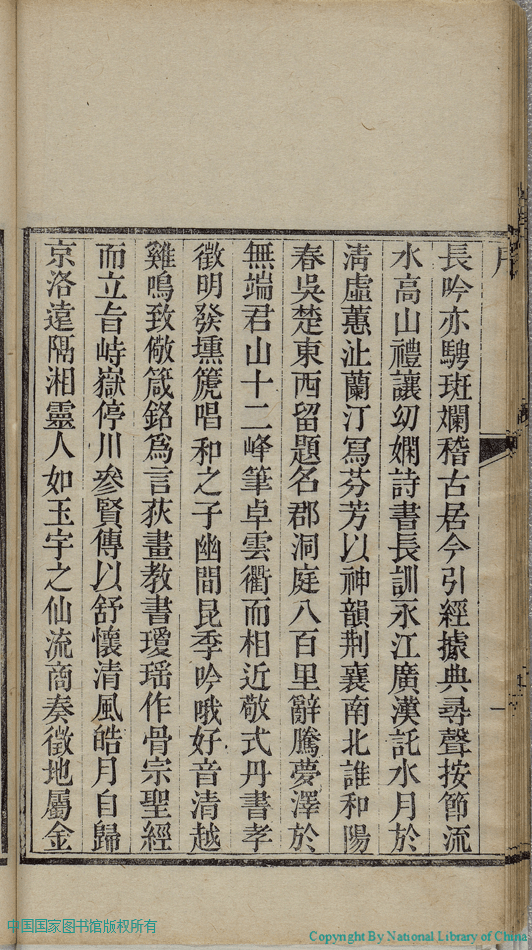 長吟亦騁斑斕稽古居今引經據典尋聲按節流
水高山禮讓幼嫻詩書長訓永江廣漢託水月於
清虛蕙沚蘭汀寫芬芳以神韻荆襄南北誰和陽
春吳楚東西留題名郡洞庭八百里辭騰夢澤於
無端君山十二峰筆卓雲衢而相近敬式丹書孝
徵明發壎箎唱和之子幽間昆季吟哦好音清越
雞鳴致儆箴銘爲言荻畫教書瓊瑶作骨宗聖經
而立旨峙嶽停川參賢傳以舒懷清風皓月自歸
京洛遠隔湘靈人如玉宇之仙流商奏徵地屬金
中国国家图书馆版权所有
Copyright By National Library of China